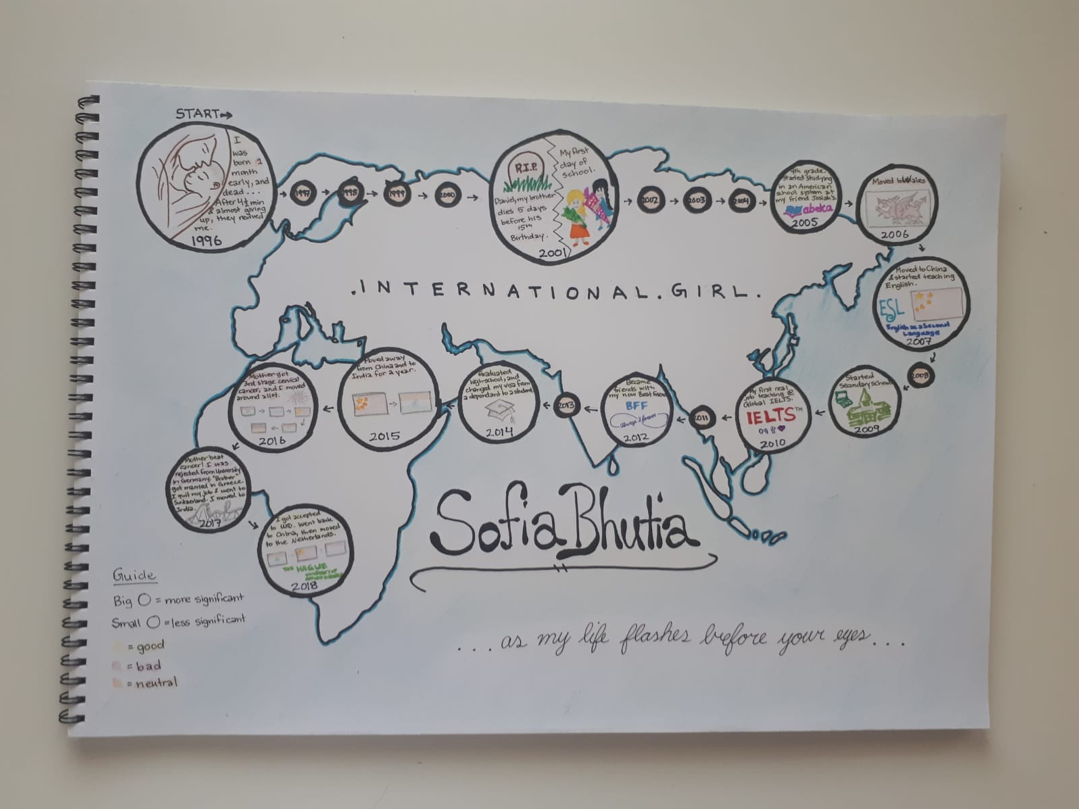 START→
I
was
born 1
month
early, and
dead...
After 4½ min
& almost giving
up, they revived
me.
1996
1997
1998
1999
2000
R.I.P.
David, my brother
dies 5 days
before his
15th
Birthday.
My first
day of
school.
2001
2012
2003
2004
4th grade.
Started studying
in an American
school system at
my friend Josiah's
abeka
2005
Moved to Wales
2006
Moved to China
& started teaching
English.
ESL
English as a Second
Language
2007
2008
Started
Secondary School
2009
My first real
job teaching @
Global IELTS.
IELTS™
2010
2011
Became
friends with
my now Best Friend
BFF
Always & forever
2012
2013
Graduated
high-school, and
changed my visa from
a dependant to a student
2014
Moved away
from China and to
India for a year.
2015
Mother got
3rd stage cervical
cancer, and I moved
around a lot.
2016
Mother beat
cancer! I was
rejected from University
in Germany. "Brother"
got married in Greece.
I quit my job & went to
Switzerland. I moved to
India.
2017
I got accepted
to UID. Went back
to China, then moved
to the Netherlands.
THE HAGUE
2018
.INTERNATIONAL.GIRL.
Sofia Bhutia
...as my life flashes before your eyes...
Guide
Big O = more significant
Small O = less significant
= good
= bad
= neutral